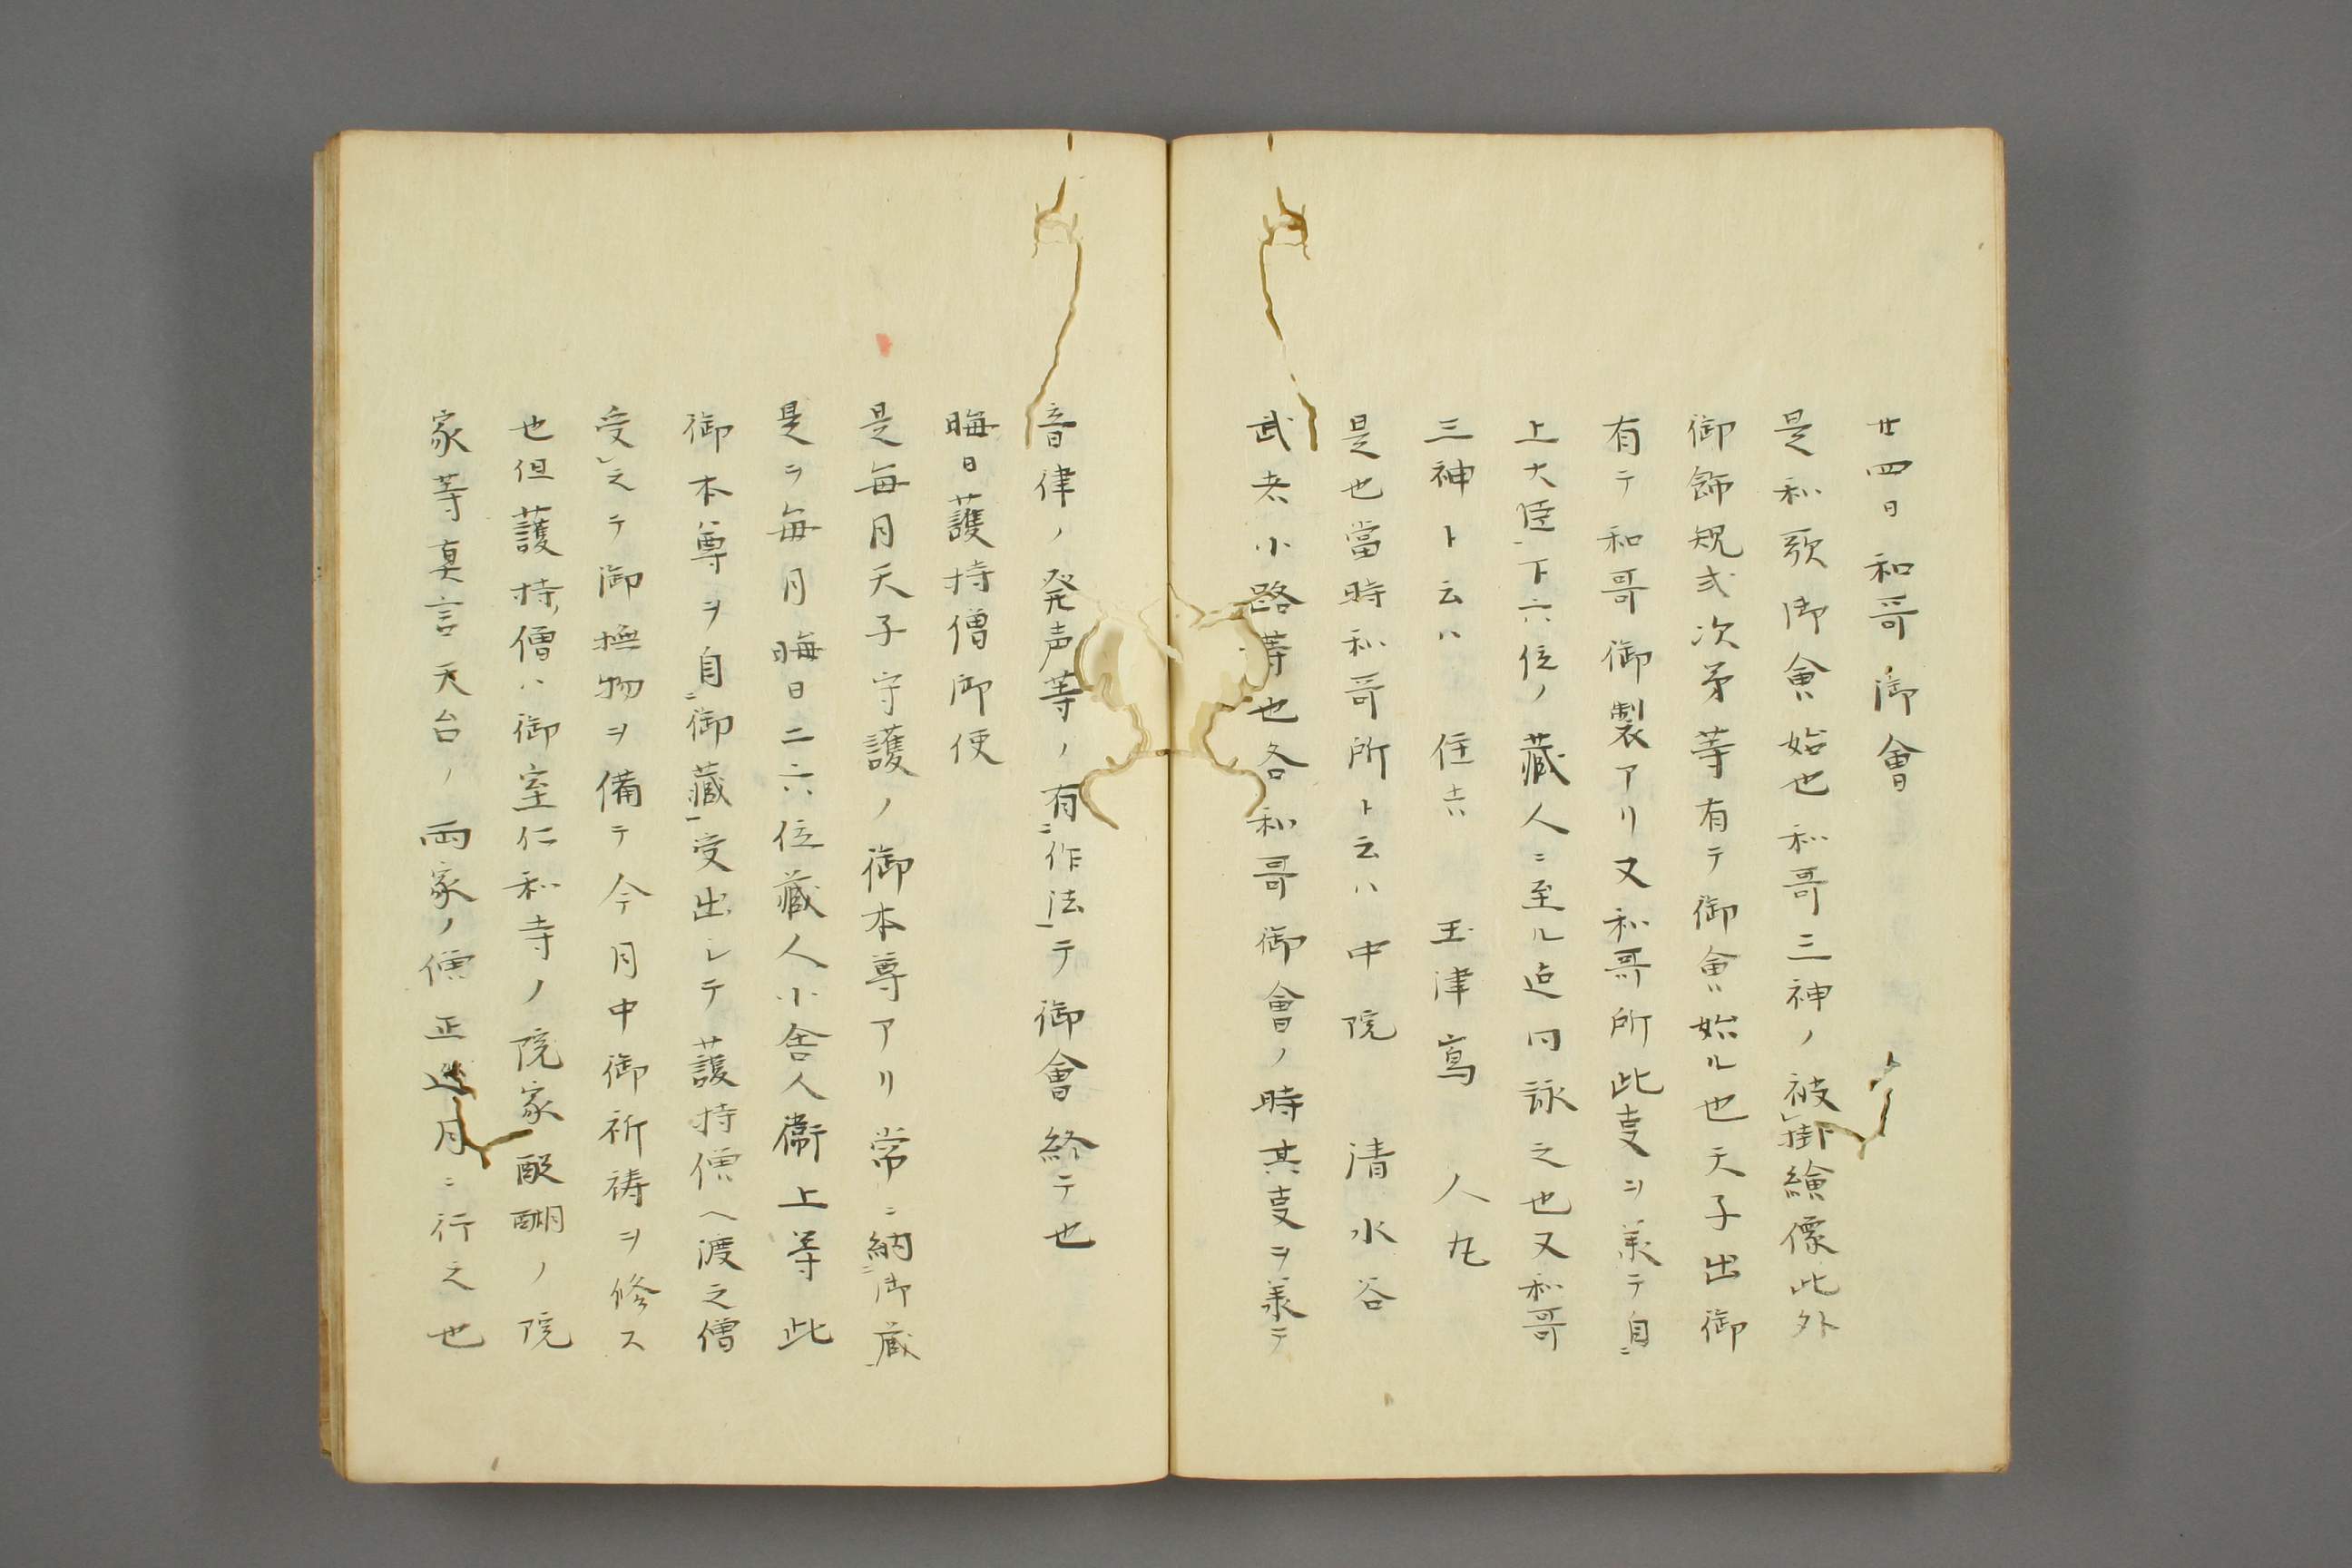 廿四日和哥御會
是和歌御會始也和哥三神ノ被レ掛繪像此外
御餝規式次㐧等有テ御會始ル也天子出御
有テ和哥御製アリ又和哥所此㕝ヲ羕テ自ニ
上大臣一下六位ノ藏人ニ至ル迠同詠之也又和哥
三神ト云ハ　住吉　玉津嶌　人丸
是也當時和哥所ト云ハ中院　清水谷
武者小路等也各和哥御會ノ時其㕝ヲ羕テ
音律ノ発声等ノ有ニ作法一テ御會終テ也
晦日護持僧御使
是毎月天子守護ノ御本尊アリ常ニ納ニ御蔵一
是ヲ毎月晦日ニ六位藏人小舎人衞上等此
御本尊ヲ自ニ御藏一受出シテ護持僧ヘ渡之僧
受レ之テ御撫物ヲ備テ今月中御祈祷ヲ修ス
也但護持僧ハ御室仁和寺ノ院家醍醐ノ院
家等真言天台ノ両家ノ僧正送月ニ行之也